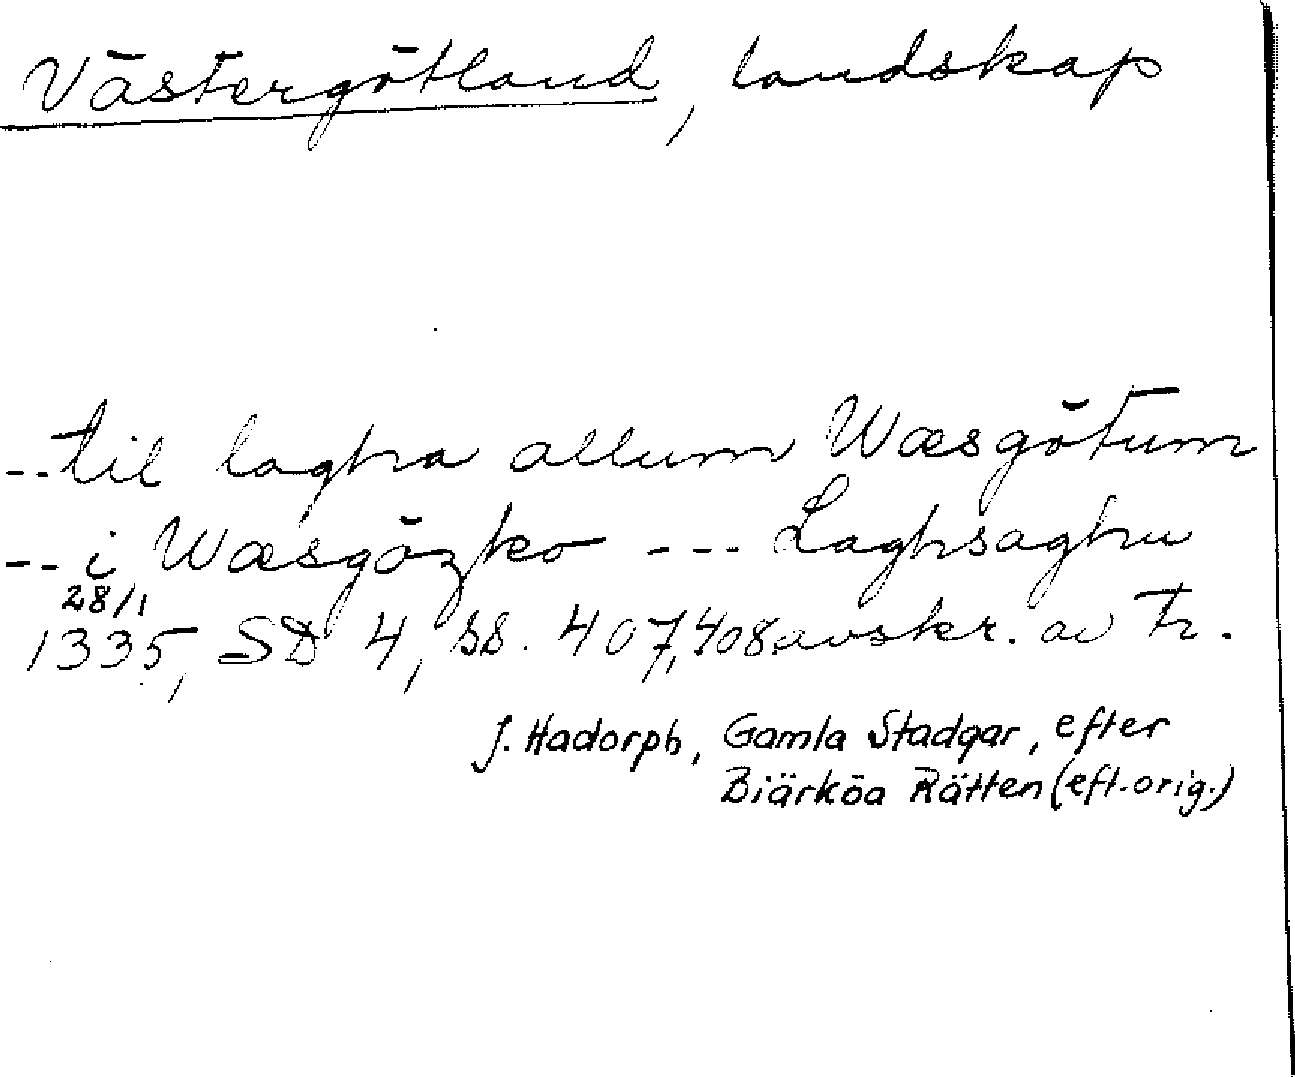 Västergötland, landskap
--til laghа allum Wæsgötum
-- i Wæsgözko --- Laghsaghu
28/1
1335, SD 4, ss. 407, 408 avskr. av tr.
J. Hadorph, Gamla Stadgar, efter
Biärköa Rätten (eft. orig.)